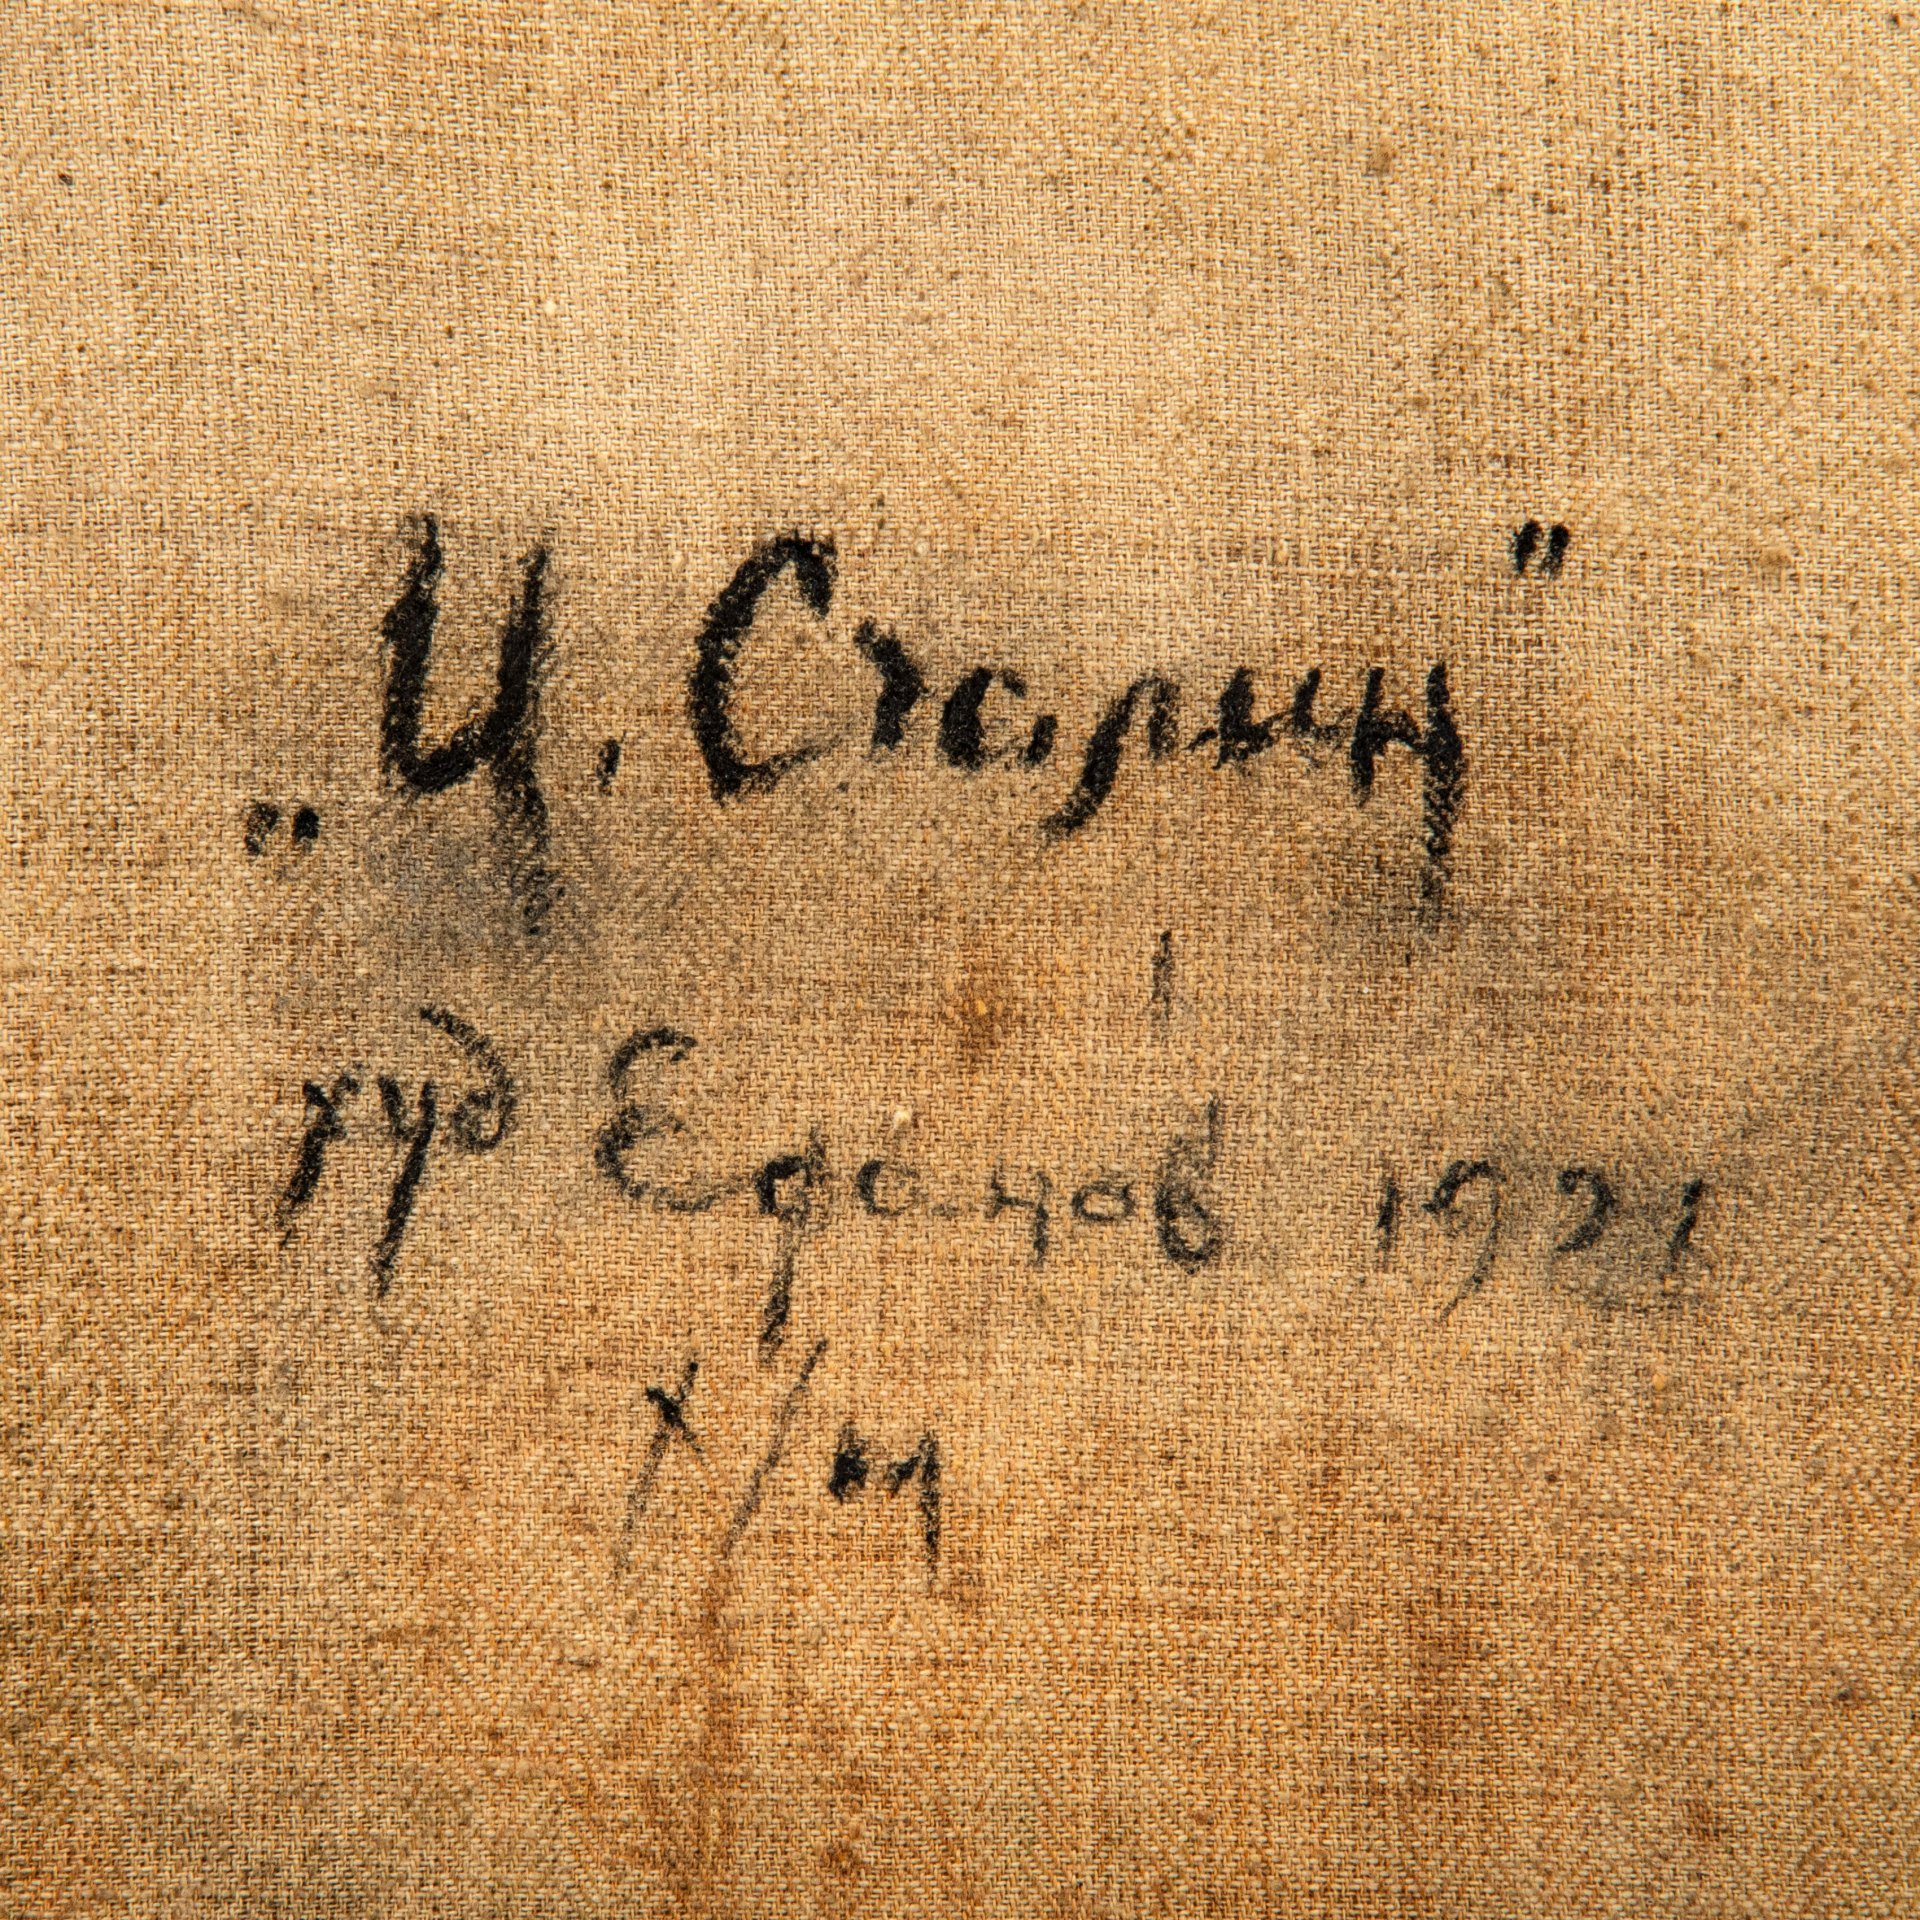 „И. Сталин"
худ Ефанов 1921
х/м